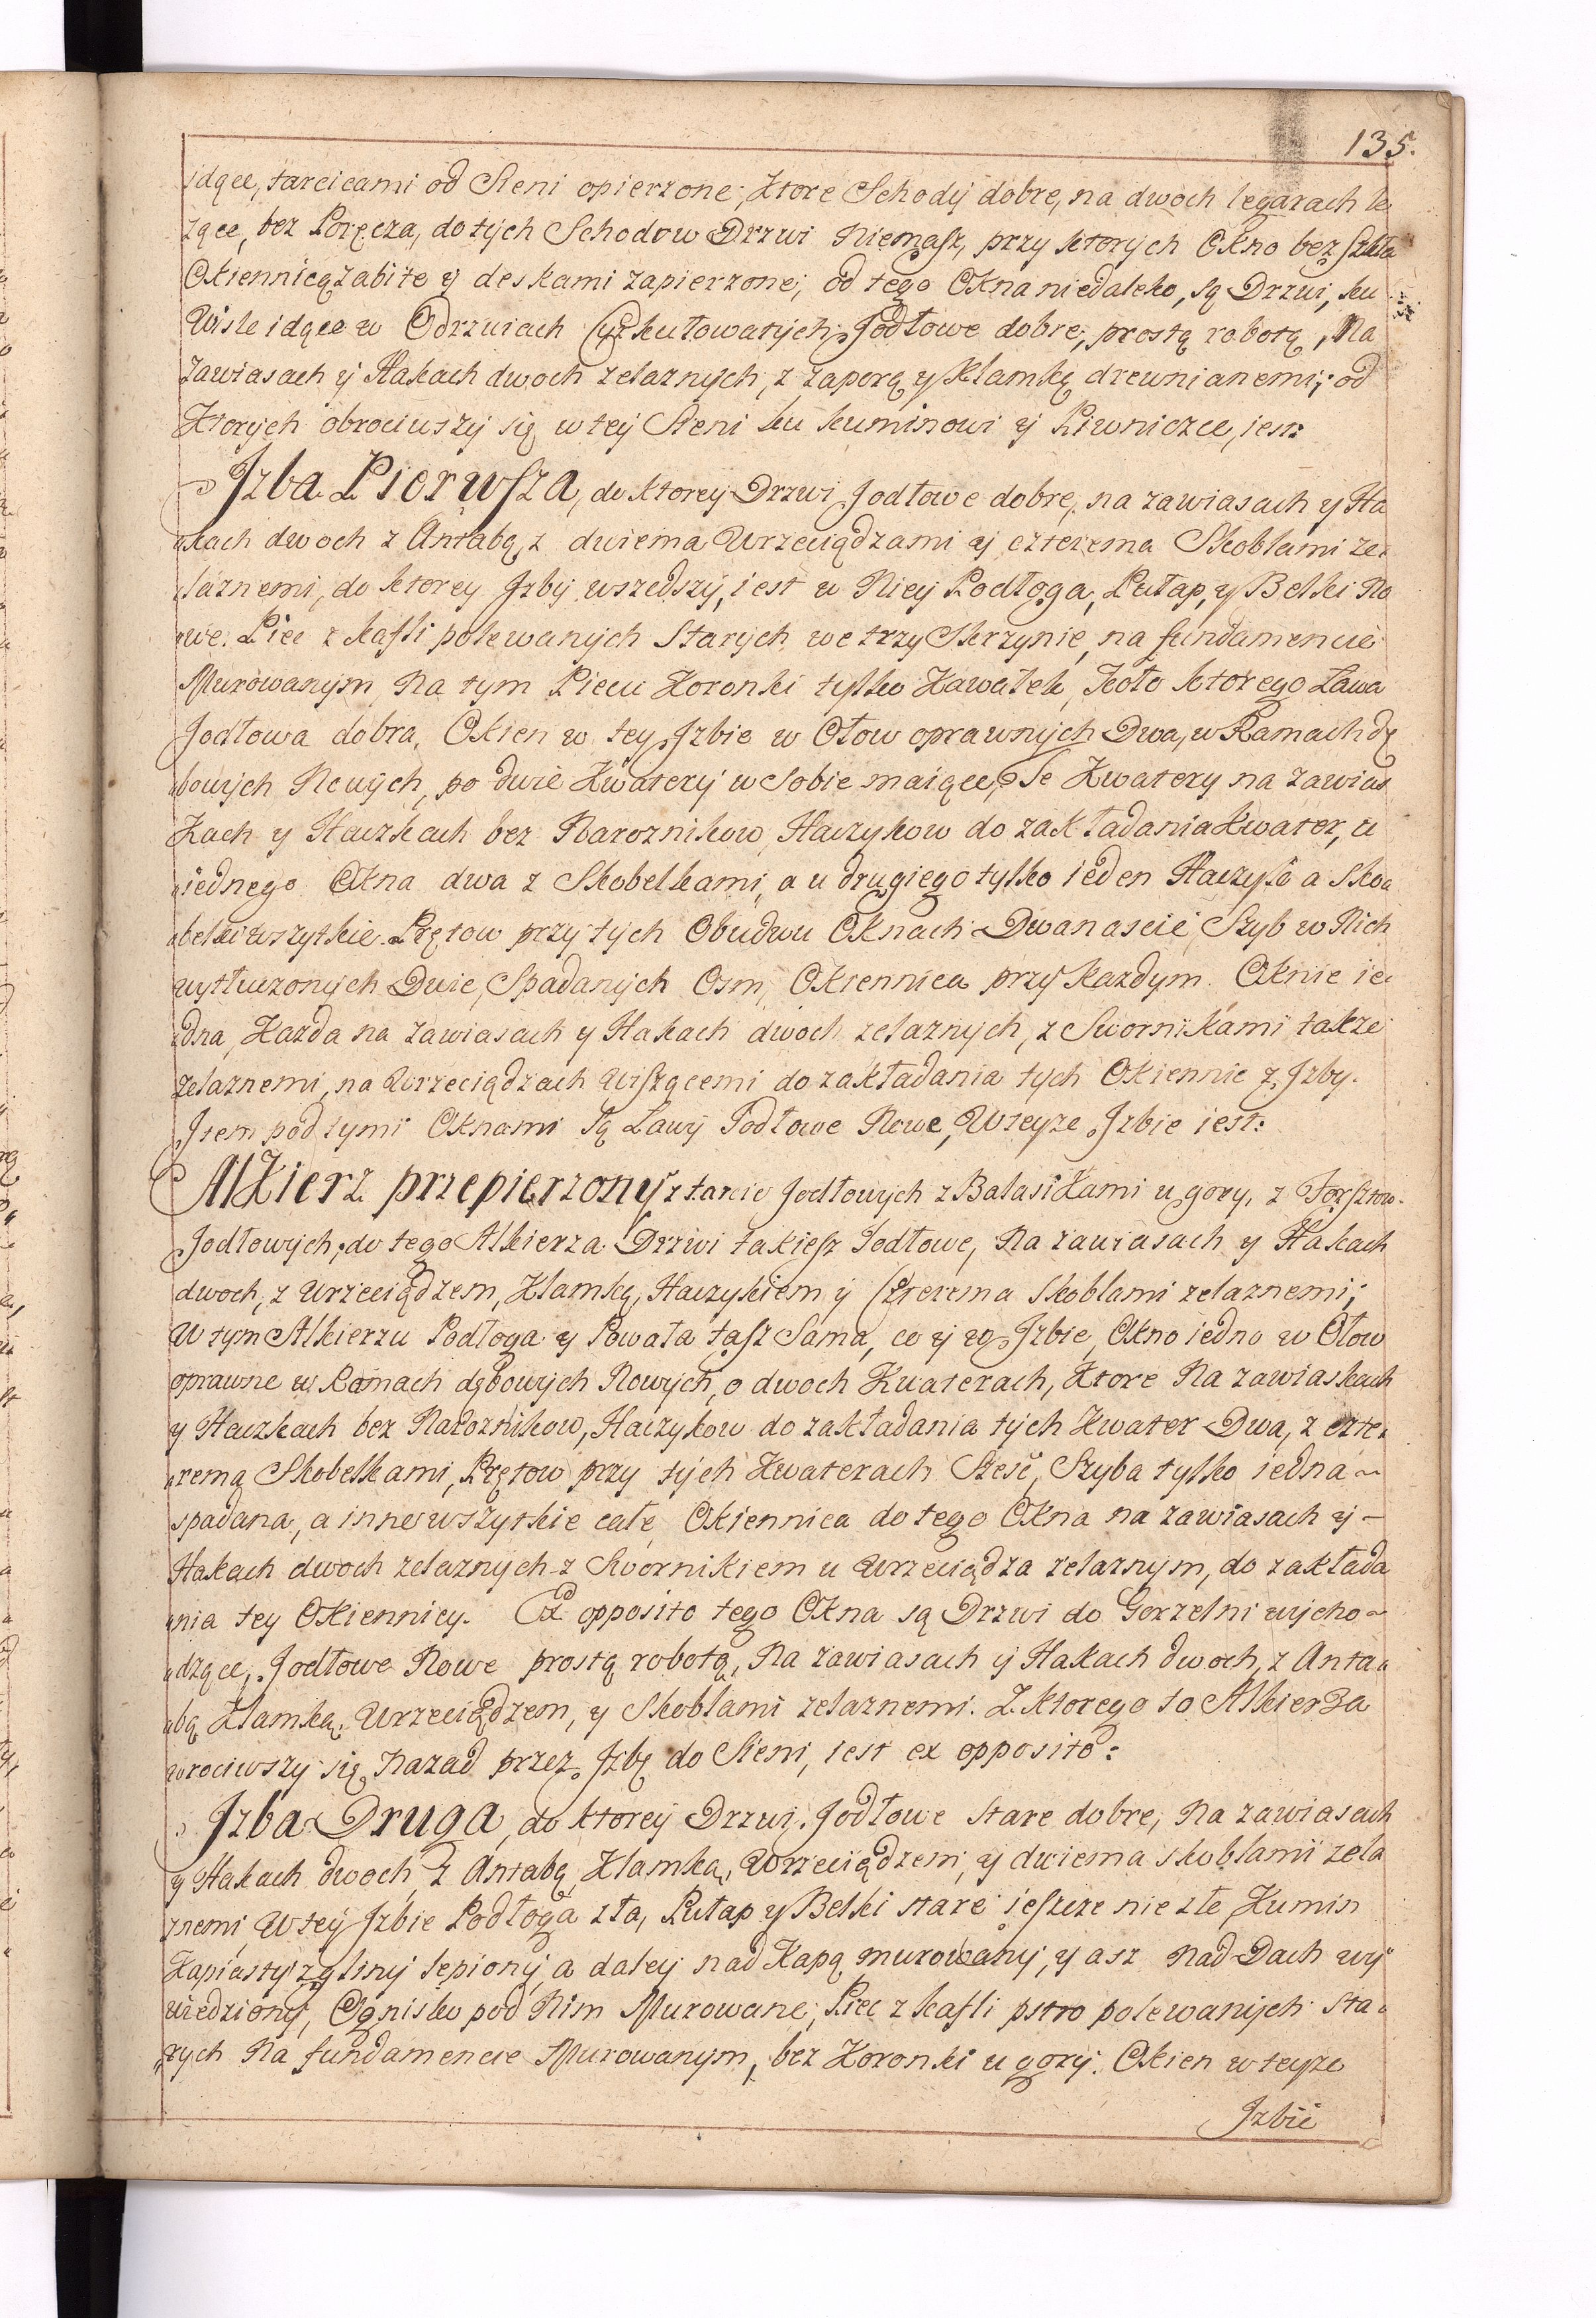 135.
idące, tarcicami od Sieni opierzone, Ktore Schody dobre, na dwoch legarach le
zące, bez Poręcza, do tych Schodow Drzwi Niemasz, przy ktorych Okno bez szkła
Okiennicą zabite y deskami zapierzone; od tego Okna niedaleko, są Drzwi, ku
Wisle idące w Odrzwiach Jodłowe dobre, prostą robotą, Na
zawiasach y Hakach dwoch zelaznych, z zaporą y klamką drewnianemi; od
Ktorych obrociwszy się w tey Sieni ku kuminowi y Piwniczce, iest:
Jzba Pierwsza, do ktorey Drzwi Jodłowe dobre, na zawiasach y Ha
kach dwoch z Antabą, z dwiema Wrzeciądzami y czterema Skoblami ze
laznemi, do ktorey Jzby wszedszy, iest w Niey Podłoga, Pułap, y Belki No
we. Piec z kafli polewanych Starych we trzy Skrzynie, na fundamencie
Murowanym, Na tym Piecu Koronki tylko Kawałek, Koło ktorego Ława
Jodłowa dobra, Okien w tey Jzbie w Ołow oprawnych Dwa, w Ramach dę
bowych Nowych, po dwie Kwatery w Sobie maiące, Te Kwatery na zawias
Kach y Haczkach bez Naroznikow, Haczykow do zakładania Kwater, u
iednego Okna dwa z Skobelkami, a u drugiego tylko ieden Haczyk a Sko
belki wszytkie. Prętow przy tych Obudwu Oknach Dwanascie, Szyb w Nich
wytłuczonych Dwie, Spadanych Osm, Okiennica przy Kazdym Oknie ie
dna, Kazda na zawiasach y Hakach dwoch zelaznych, z Swornikami takze
zelaznemi, na Wrzeciądzach wiszącemi do zakładania tych Okiennic z Jzby.
Jtem pod tymi Oknami są Ławy Jodłowe Nowe, Wteyze Jzbie iest:
AlKierz przepierzony z tarcic Jodłowych z BalasiKami u gory, z Forsztow
Jodłowych, do tego Alkierza Drzwi takiesz Jodłowe, Na zawiasach y Hakach
dwoch, z wrzeciądzem, Klamką, Haczykiem y czterema Skoblami zelaznemi;
W tym Alkierzu Podłoga y Powała tasz Sama, co y w Jzbie, Okno iedno w Ołow
oprawne w Ramach dębowych Nowych, o dwoch Kwaterach, Ktore Na zawiaskach
y Haczkach bez Naroznikow, Haczykow do zakładania tych Kwater Dwa, z czte
rema Skobelkami, Prętow przy tych Kwaterach Szesć, Szyba tylko iedna
spadana, a inne wszytkie całe, Okiennica do tego Okna na zawiasach y
Hakach dwoch zelaznych z Swornikiem u Wrzeciądza zelaznym, do zakłada
nia tey Okiennicy. Ex opposito tego Okna są Drzwi do Gorzelni wycho
dzące, Jodłowe Nowe prostą robotą, Na zawiasach y Hakach dwoch, z Anta
bą Klamką, Wrzeciądzem, y Skoblami zelaznemi. Z ktorego to Alkierza
wrociwszy się nazad przez Jzbę do Sieni, iest ex opposito:
Jzba Druga, do ktorey Drzwi Jodłowe stare dobre, Na zawiasach
y Hakach dwoch, z Antabą, Klamką, Wrzeciądzem, y dwiema skoblami zela
znemi, W tey Jzbie Podłoga zła, Pułap y Belki stare ieszcze nie złe, Kumin
Kapiasty z gliny lepiony, a daley nad Kapą murowany, y asz nad Dach wy
wiedziony, Ognisko pod Nim Murowane, Piec z kafli pstro polewanych sta
rych na fundamencie Murowanym, bez Koronki u gory. Okien w teyze
Jzbie